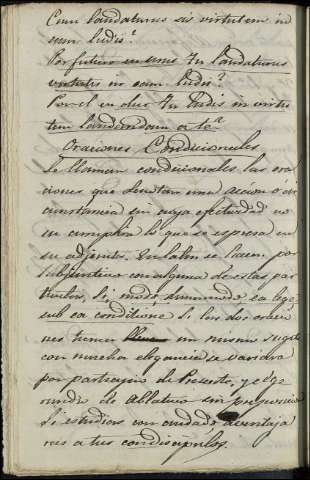 Cum laudaturus sis virtutem in
cum ludis?
Por futuro en urus Tu laudaturus
virtutis no cum ludis?
Por el en dus Tu ludis in virtu
tem laudandam a te?
Oraciones Condicionales
Se llaman condicionales las ora
ciones que denotan una accion ó cir
cunstancia sin cuya efectuidad no
se cumple lo que se espresa en
su adjunta. En latin se hacen por
subjuntivo con alguna de estas par
ticulas, Si, modo, dummodo ea lege
sub ea conditione Si las dos oracio
nes tienen un mismo sugeto
con mucha elegancia se variará
por participio de Presente, y de ge
rundio de Ablativo sin preposicion
Si estudias con cuidado aventaja
ras a tus condiscipulos.